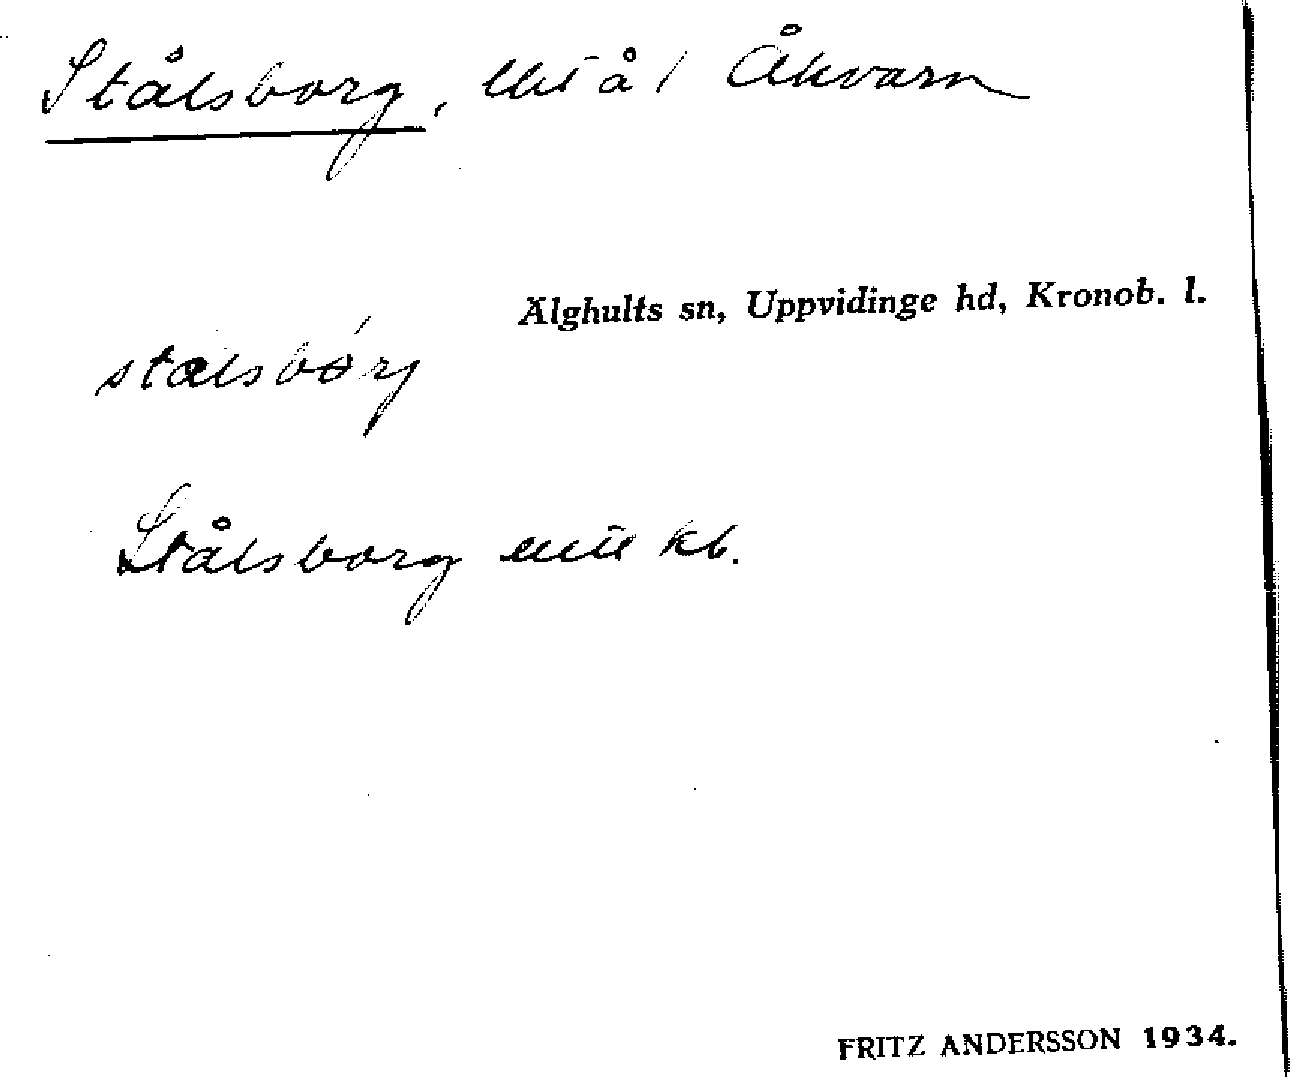 Stålsborg, lht å 1 Åkvarn
Älghults sn, Uppvidinge hd, Kronob. l.
stalsbórj
Stålsborg enl kb.
FRITZ ANDERSSON 1934.